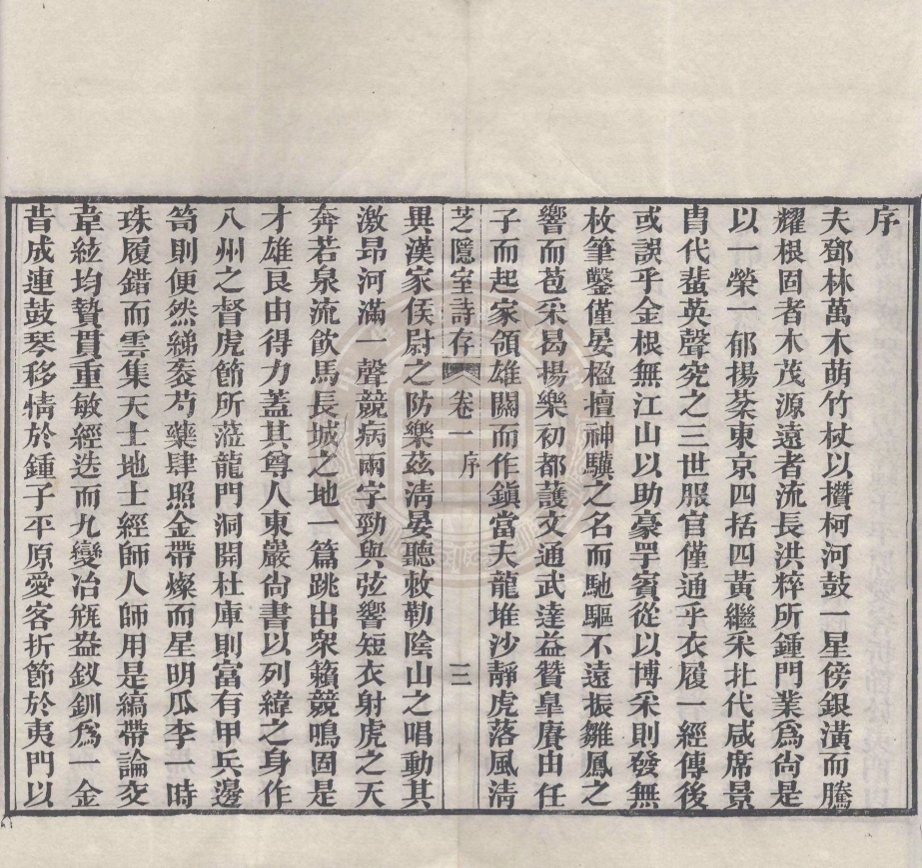 序
夫鄧林萬木萌竹杖以攢柯河鼓一星傍銀潢而騰
耀根固者木茂源遠者流長洪粹所鍾門業爲尙是
以一榮一郁揚棻東京四括四黃繼采北代咸席景
胄代蜚英聲究之三世服官僅通乎衣履一經傳後
或誤乎金根無江山以助豪罕賓從以博采則發無
枚筆鑿僅晏楹擅神驥之名而馳驅不遠振雛鳳之
響而苞采曷揚樂初都護文通武達益贊皇賡由任
子而起家領雄關而作鎭當夫龍堆沙靜虎落風淸
芝隱室詩存 卷一 序 三
異漢家侯尉之防樂茲淸晏聽敕勒陰山之唱動其
激昂河滿一聲競病兩字勁與弦響短衣射虎之天
奔若泉流飲馬長城之地一篇跳出衆籟競鳴固是
才雄良由得力蓋其尊人東巖尙書以列緯之身作
八州之督虎節所蒞龍門洞開杜庫則富有甲兵邊
笥則便然綈袠芍藥肆照金帶燦而星明瓜李一時
珠履錯而雲集天士地士經師人師用是縞帶論交
韋紘均贄貫重敏經迭而九變冶甁盎釵釧爲一金
昔成連鼓琴移情於鍾子平原愛客折節於夷門以